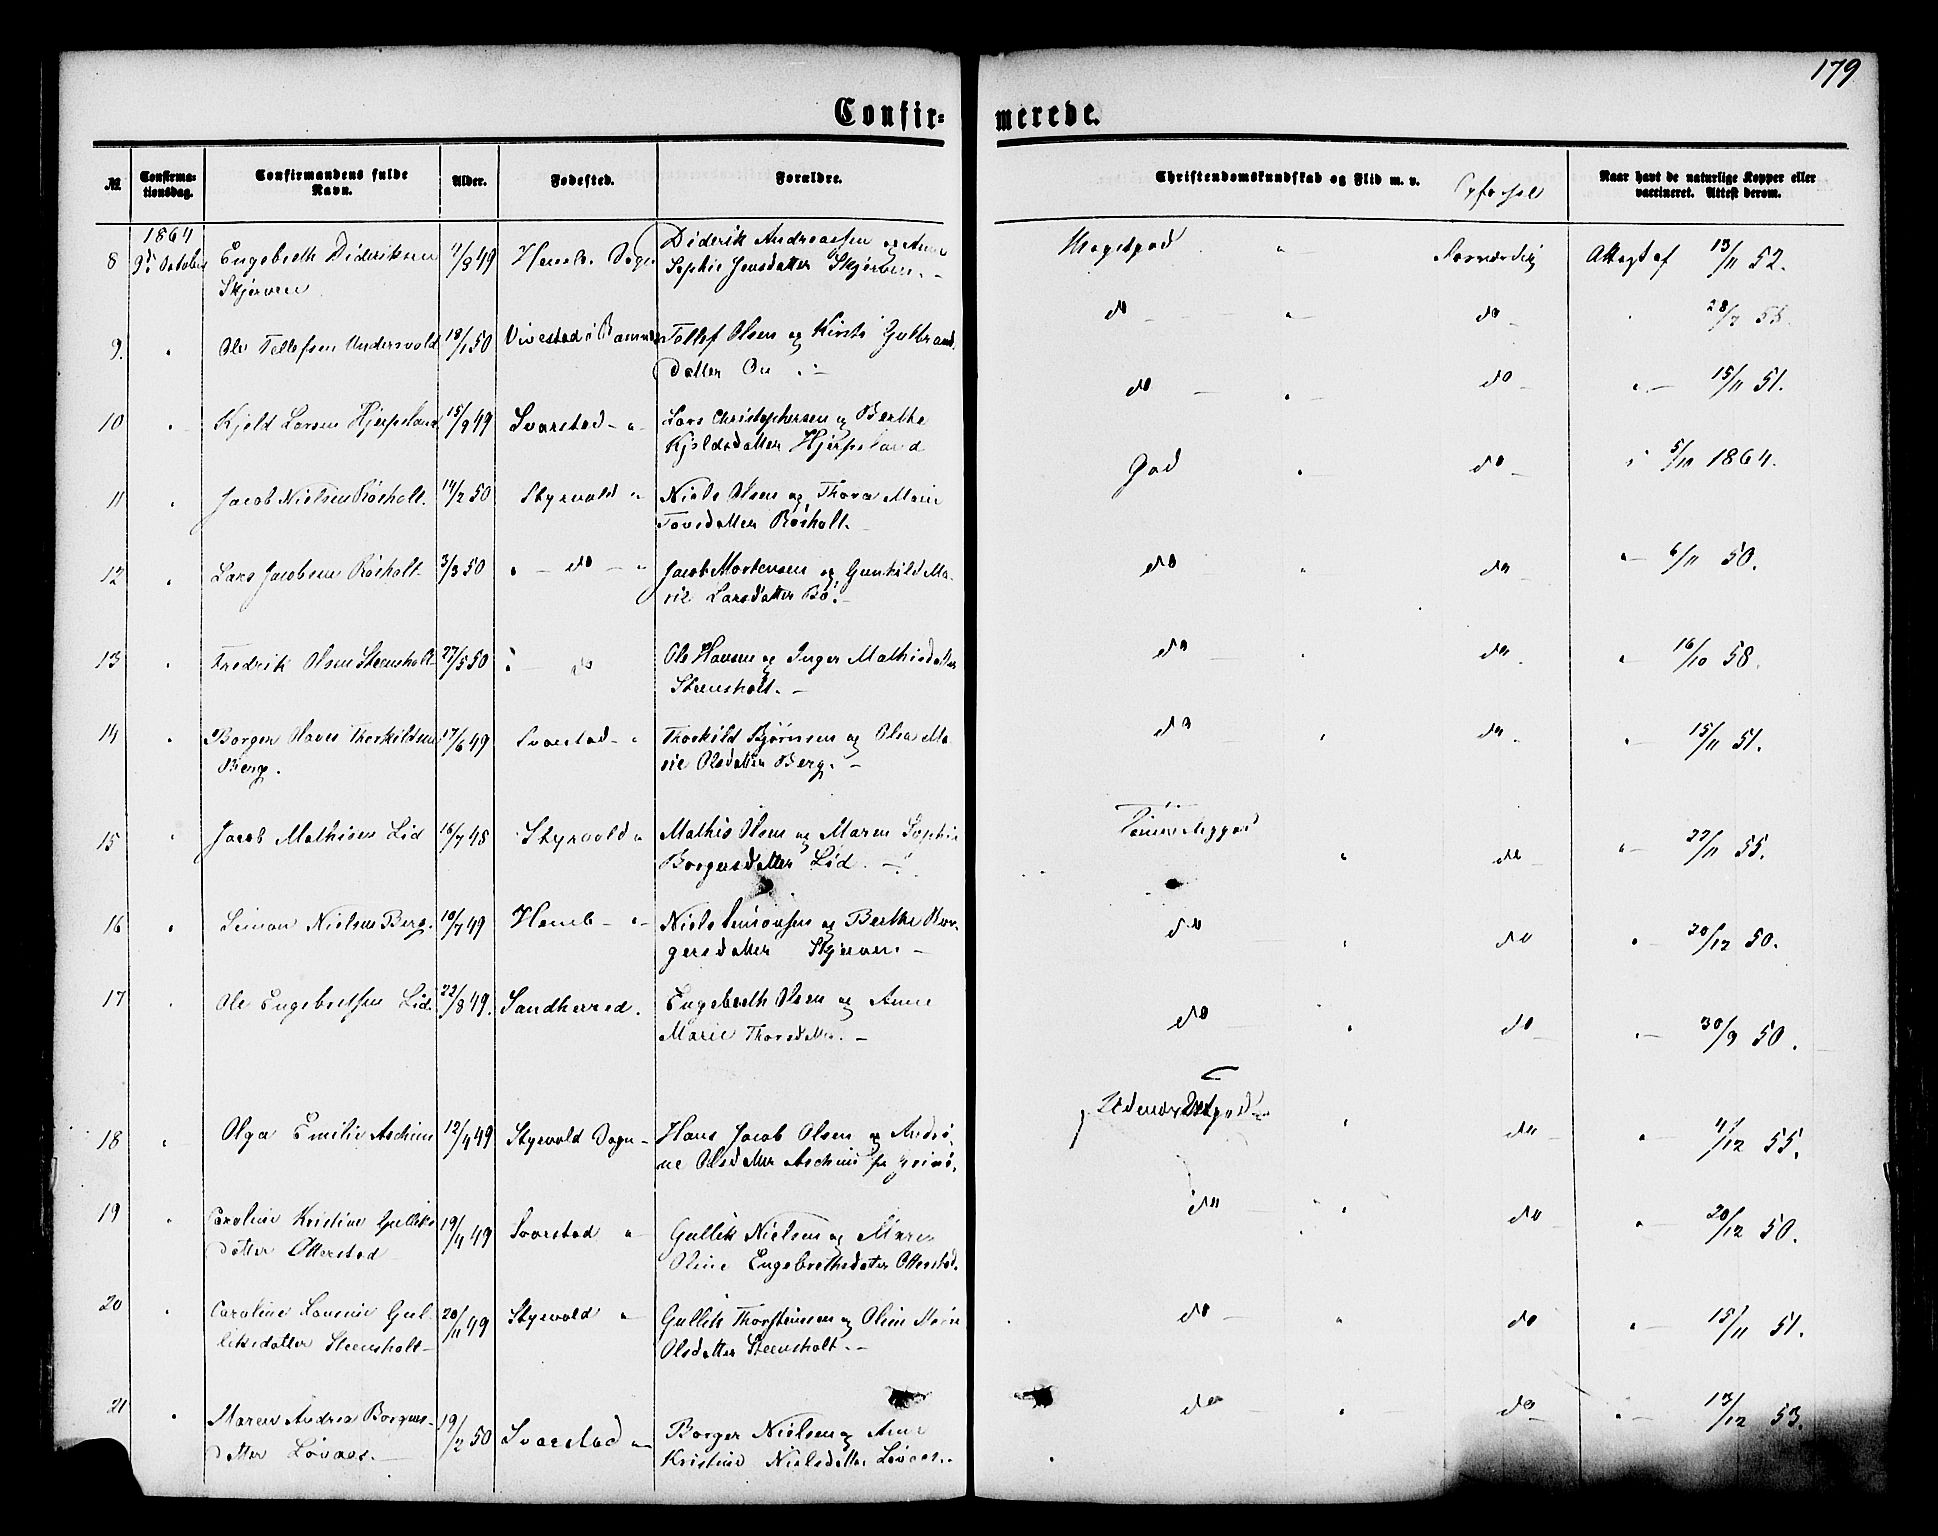 179
Confir= merede.
№ Confirma= tionsdag. Confirmandens fulde Navn. Alder. Fødested. Forældre. Christendomskundskab og Flid m. v. Opførsel Naar havt de naturlige Kopper eller vaccineret. Attest derom.
1864
8 9de October Engebreth Dideriksen 4/9 49 Diderik Andreassen og Anne Meget god " 13/11 52.
Skjerven Sophie Jensdatter Skjerven. -
9. " Ole Tollefsen Undersvold 18/1 50 Vivestad i Ramnes Tollef Olsen og Kirsti Gulbrands do - " - do - 28/7 55.
Datter On
10 " Kjeld Larsen Hjerpeland 15/9 49 Svarstad - " Lars Christophersen og Berthe do - " - do - " - 15/11 51.
Kjeldsdatter Hjerpeland
11 " Jacob Nielsen Røsholt. 14/2 50 Styrvold " Niels Olsen og Thora Marie God " do - 5/10 1864.
Tovsdatter Røsholt. -
12 " Lars Jacobsen Røsholt - 3/3 50 " - do - " Jacob Mortensen og Gunhild Ma- do " do - " - 6/11 50.
rie Larsdatter Bø. -
13 " Fredrik Olsen Steensholt 27/5 50 " - do Ole Hansen og Inger Mathisdatter do - " do - " - 16/10 58.
Steensholt. -
14 " Borger Hans Thorkildsen 17/6 49 Svarstad - " Thorkild Bjørnsen og Olea Ma- do - " do - " - 15/11 51.
Berg. rie Olsdatter Berg. -
15 " Jacob Mathisen Lid 16/7 48 Styrvold " Mathis Olsen og Maren Sophie " do - " - 22/11 55.
Borgersdatter Lid. -
16 " Simon Nielsen Berg. 10/7 49 Hemb - " Niels Simonsen og Berthe Bor- do " do " - 20/12 50.
gersdatter Skjerven. -
17 " Ole Engebretsen Lid. 22/8 49. Sandherred. Engebreth Olsen og Anne do - " do - " - 30/9 50.
Marie Thorsdatter. -
18 " Olga Emilie Aschim 12/4 49 Styrvold Sogn - Hans Jacob Olsen og Andri- " do - " - 4/12 55.
ne Olsdatter Aschim
19 " Caroline Kristine Gulliks 19/4 49 Svarstad " Gullik Nielsen og Maren do " do - " - 20/12 50.
datter Otterstad Oline Engebrethsdatter Otterstad.
20 " Caroline Hansine Gul- 20/11 49 Styrvold " Gullik Thorstensen og Oline Marie do - " do " - 15/11 51.
liksdatter Steensholt - Olsdatter Steensholt. -
21 " Maren Andrea Borgers- 19/2 50 Svarstad - Borger Nielsen og Anne do - " - do - " - 13/12 53.
datter Løvaas. - Kristine Nielsdatter Løvaas. -